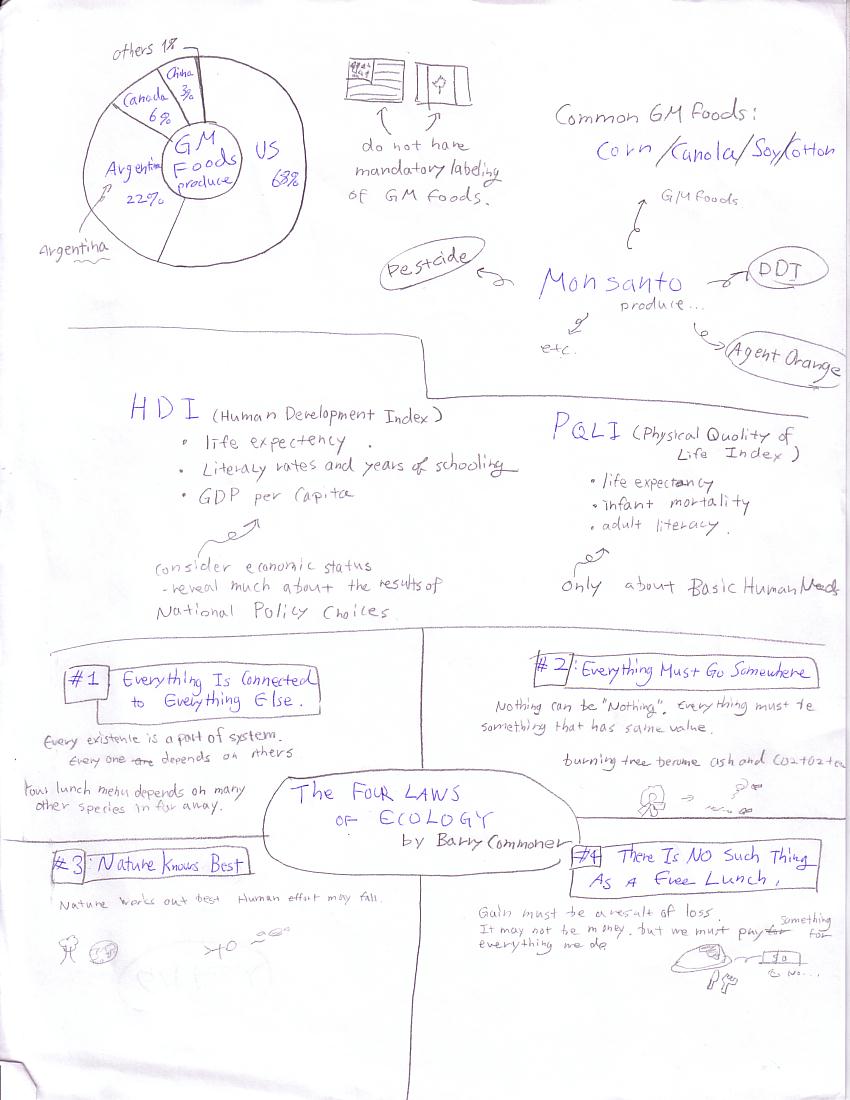 others 1%
China
3%
Canada
6%
GM
Foods
produce
US
68%
Argentina
22%
Argentina
do not have
mandatory labeling
of GM foods.
Common GM foods:
Corn/Canola/Soy/Cotton
G/M foods
Pesticide
Monsanto
produce...
DDT
etc.
Agent Orange
HDI (Human Development Index)
• life expectency.
• Literacy rates and years of schooling
• GDP per Capita
consider economic status
-reveal much about the results of
National Policy Choices
PQLI (Physical Quality of
Life Index)
• life expectancy
• infant mortality
• adult literacy.
Only about Basic Human Needs
#1 Everything Is Connected
to Everything Else.
Every existence is a part of system.
Every one are depends on others
Your lunch menu depends on many
other species in far away.
#2: Everything Must Go Somewhere
Nothing can be "Nothing". Everything must be
something that has same value.
burning tree become ash and CO2+O2+
The Four Laws
of Ecology
by Barry Commoner
#3: Nature Knows Best
Nature works out best Human effort may fail.
#4 There Is No Such Thing
As a Free Lunch.
Gain must be a result of loss.
It may not be money. but we must pay for something for
everything we do
No...